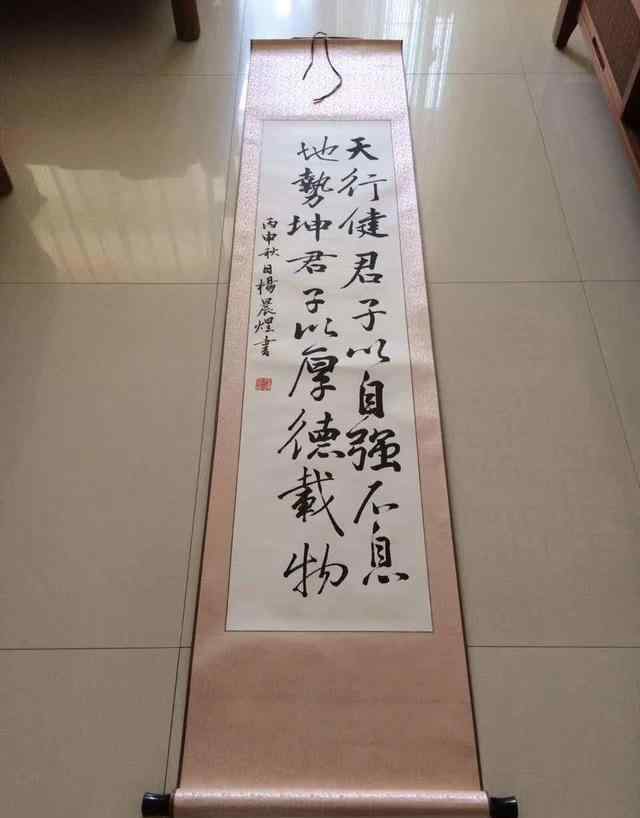 天行健君子以自强不息
地勢坤君子以厚德載物
丙申秋日楊晨煋書